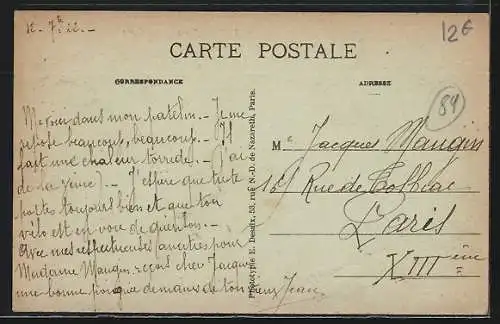 12€
CARTE POSTALE
CORRESPONDANCE
ADRESSE
89
Me voici dans mon patelin. - Je me
repose beaucoup, beaucoup. - Il
fait une chaleur torride. - J'ai
de la
J'espère que tu te
portes toujours bien et que ton
vélo est en voie de guérison. -
Avec mes respectueuses amitiés pour
Madame Maugin, reçois cher Jacques
une bonne poignée de mains de ton vieux Jean.
Phototypie E. Desaix, 53, rue N.-D. de Nazareth, Paris.
M. Jacques Maugin
15 Rue de Tolbiac
Paris
XIIIème